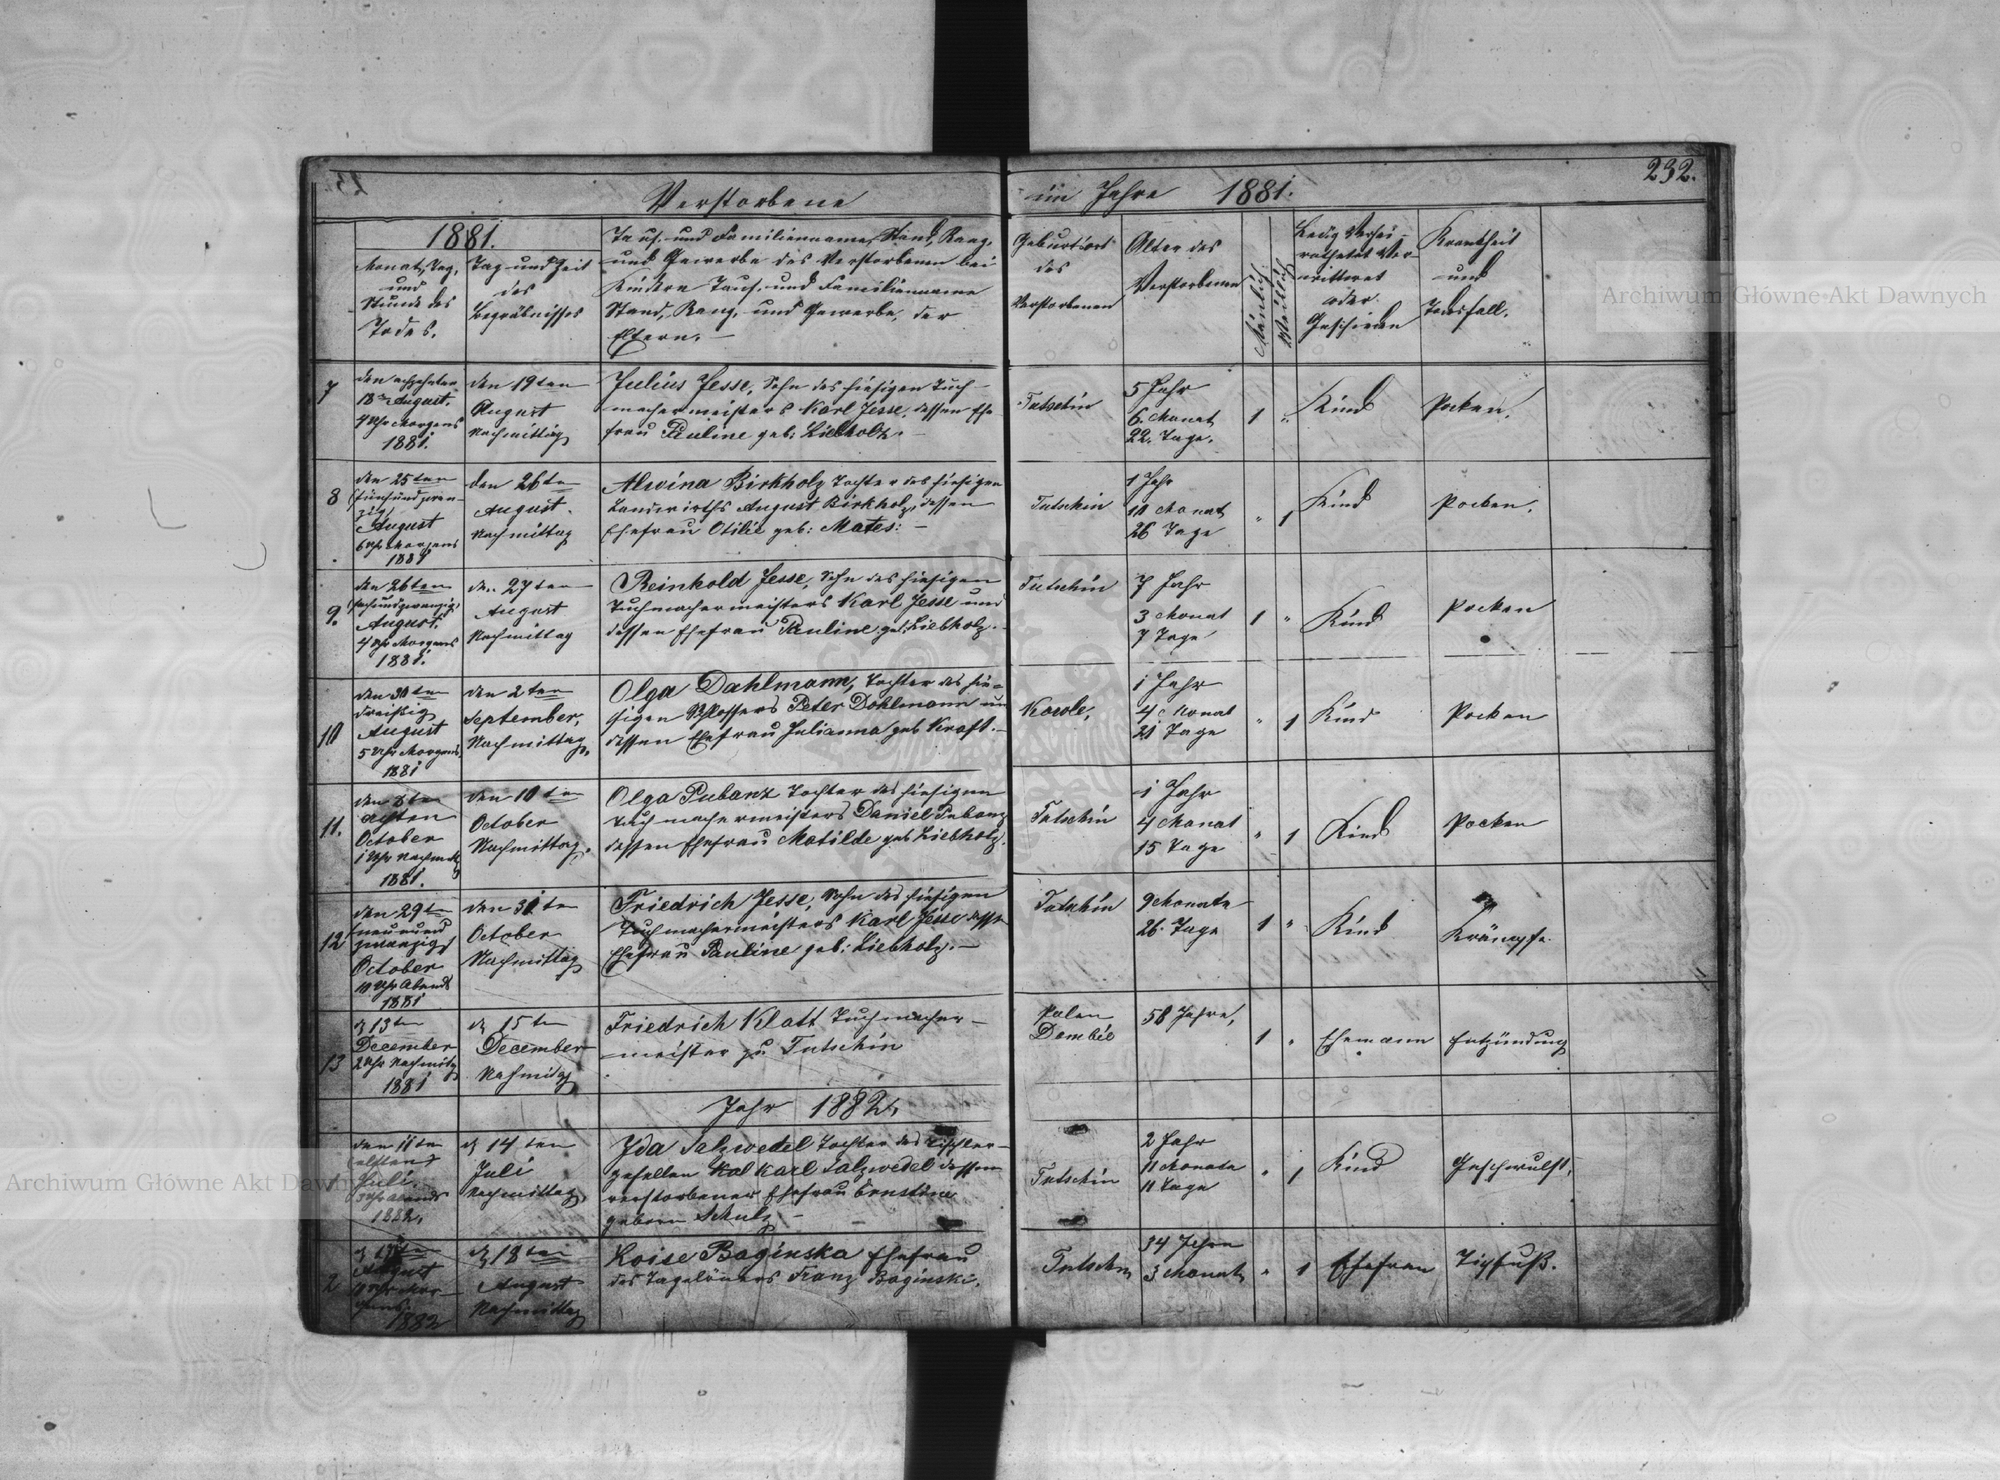 232.
Verstorbene im Jahre 1881.
1881.
Monat, Tag,
und
Stunde des
Todes.
Tag und Zeit
des
Begräbnisses
Tauf- und Familienname, Stand, Rang,
und Gewerbe des Verstorbenen bei
Kindern Tauf- und Familienname
Stand, Rang, und Gewerbe, der
Eltern. —
Geburtsort
des
Verstorbenen
Alter des
Verstorbenen
Männlich
Weiblich
Ledig Verhei-
rathetet Ver-
wittwet
oder
Geschieden
Krankheit
und
Todesfall.
7
den achzehnten
18ten August.
4 Uhr Morgens
1881.
den 19ten
August
Nachmittag
Julius Jesse, Sohn des hiesigen Tuch-
machermeisters Karl Jesse, dessen Ehe
frau Pauline geb: Liebholz. —
Tutschin
5 Jahr
6. Monat
22. Tage.
1 "
Kind
Pocken.
8
den 25ten
fünfundzwan-
zig
August
6 Uhr Morgens
1881
den 26ten
August.
Nachmittag
Alwina Birkholz Tochter des hiesigen
Landwirths August Birkholz, dessen
Ehefrau Otilie geb: Mates: —
Tutschin
1 Jahr
10 Monat
26 Tage
" 1
Kind
Pocken.
9.
den 26ten
sechsundzwanzig,
August.
4 Uhr Morgens
1881.
den 27ten
August
Nachmittag
Reinhold Jesse, Sohn des hiesigen
Tuchmachermeisters Karl Jesse und
dessen Ehefrau Pauline geb. Liebholz. —
Tutschin
7 Jahr
3 Monat
7 Tage
1 "
Kind
Pocken
10
den 30ten
dreißig
August
5 Uhr Morgens
1881
den 2ten
September,
Nachmittag.
Olga Dahlmann, Tochter des hie-
sigen Schlossers Peter Dahlmann un
dessen Ehefrau Julianna geb Kraft. —
Kowle,
1 Jahr
4 Monat
21 Tage
" 1
Kind
Pocken
11.
den 8ten
achten
October
1 Uhr Nachmitt
1881.
den 10ten
October
Nachmittag.
Olga Pubanz Tochter des hiesigen
Tuchmachermeisters Daniel Pubanz
dessen Ehefrau Matilde geb Liebholz.
Tutschin
1 Jahr
4 Monat
15 Tage
" 1
Kind
Pocken
12
den 29ten
neunund
zwanzigst
October
10 Uhr Abends
1881
den 31ten
October
Nachmittag
Friedrich Jesse, Sohn des hiesigen
Tuchmachermeisters Karl Jesse dessen
Ehefrau Pauline geb: Liebholz. —
Tutschin
9 Monate
26. Tage
1 "
Kind
Krämpfe.
13
d 13ten
December
2 Uhr Nachmittg
1881
d 15ten
December
Nachmittg
Friedrich Klatt Tuchmacher-
meister zu Tutschin
Polen
Dembie
58 Jahre,
1 "
Ehemann
Entzündung
Jahr 1882,
1
den 11ten
(elften)
Juli.
Abends
1882,
d 14ten
Juli
Nachmittag
Ida Salzwedel Tochter des Tischler-
gesellen Kal Karl Salzwedel dessen
verstorbener Ehefrau Ernstine
geborn Schulz —
Tutschin
2 Jahr
11 Monate
11 Tage
" 1
Kind
Geschwulst,
2
August
Uhr Mor-
gens.
1882
d 18ten
August
Nachmittag
Loise Baginska Ehefrau
des Tagelöners Franz Baginski.
Tutschin
34 Jahre
3 Monat
" 1
Ehefrau
Tipfuß.
Archiwum Główne Akt Dawnych
Archiwum Główne Akt Dawnych